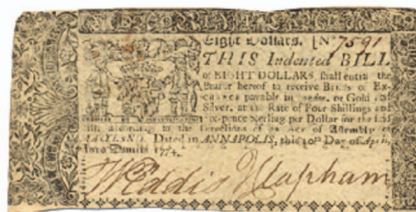 Eight Dollars. [No 7591
THIS Indented BILL
of EIGHT DOLLARS, shall entitle the
Bearer hereof to receive Bills of Ex-
change payable in London, or Gold and
Silver, at the Rate of Four Shillings and
Six-pence Sterling per Dollar for the said
Bill, according to the Directions of an Act of Assembly of
MARYLAND. Dated in ANNAPOLIS, this 10th Day of April,
Anno Domini 1774.
W Eddis J Clapham